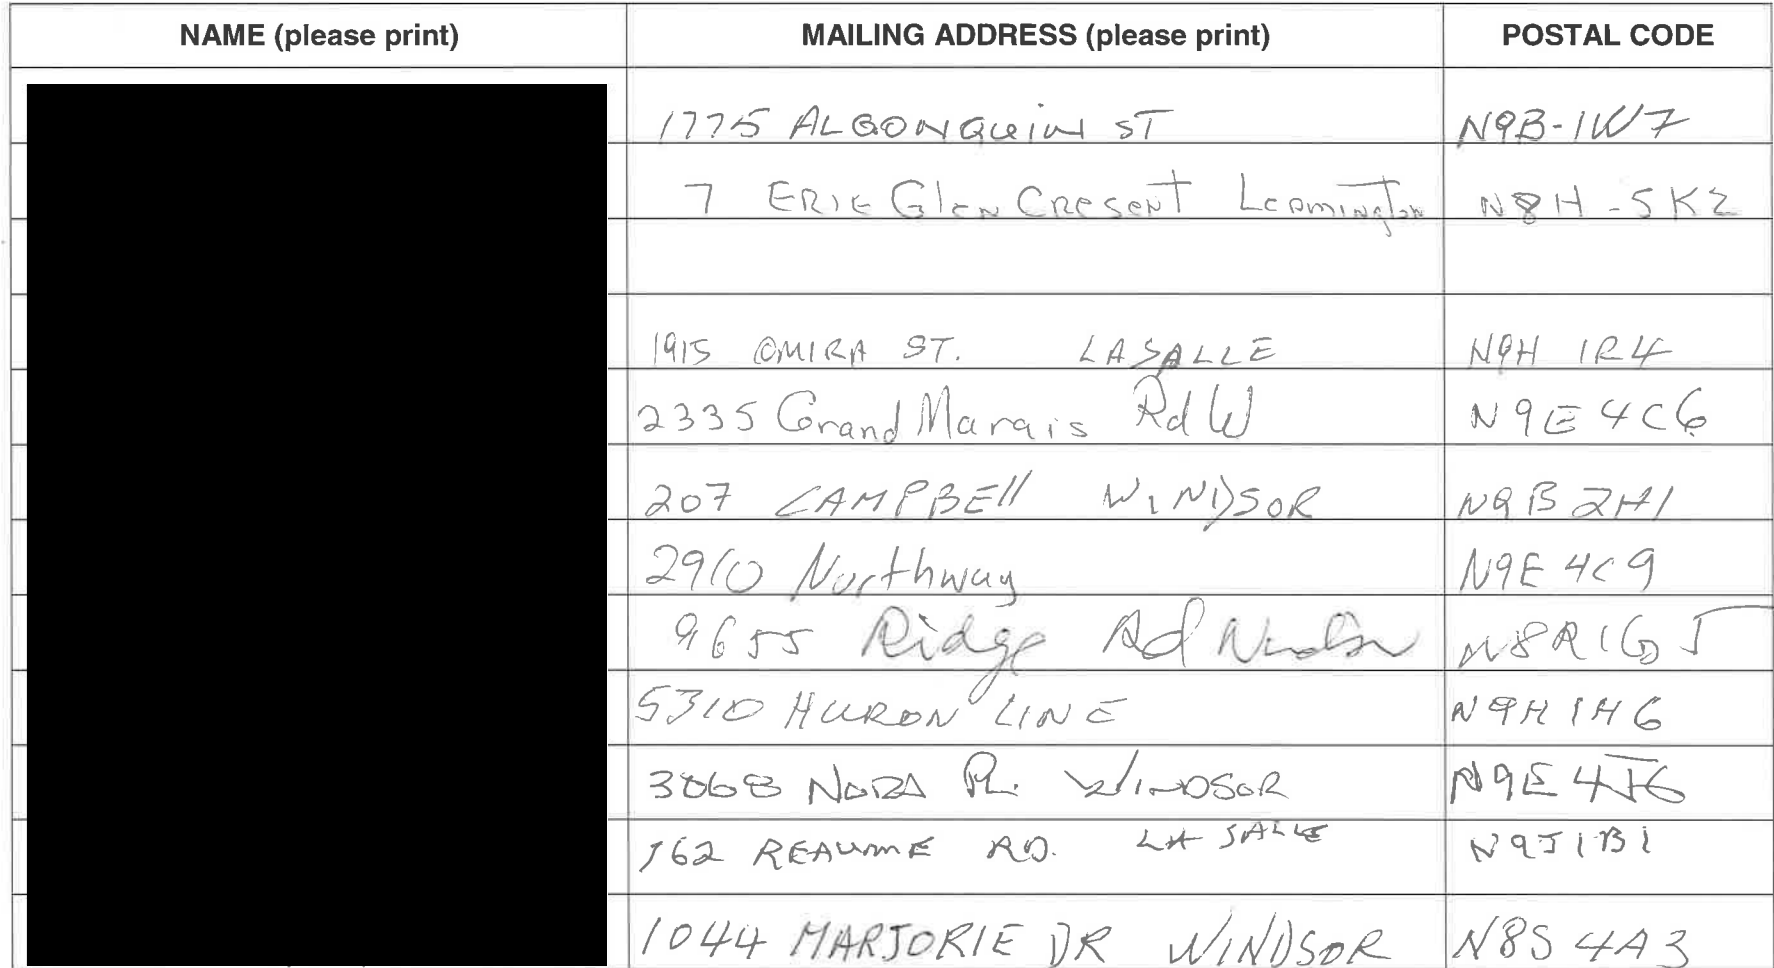 NAME (please print) MAILING ADDRESS (please print) POSTAL CODE
1775 ALGONQUIN ST N9B-1W7
7 ERIE Glen Cresent Leamington N8H-5K2
1915 OMIRA ST. LASALLE N9H 1R4
2335 Grand Marais Rd W N9E 4C6
207 CAMPBEll WINDSOR N9B 2H1
2910 Northway N9E 4C9
9655 Ridge Rd Windsor N8R1G5
5310 HURON LINE N9H1H6
3868 NORA PL. WINDSOR N9E 4J6
762 REAUME RD. LA SALLE N9J1B1
1044 MARJORIE DR WINDSOR N8S 4A3